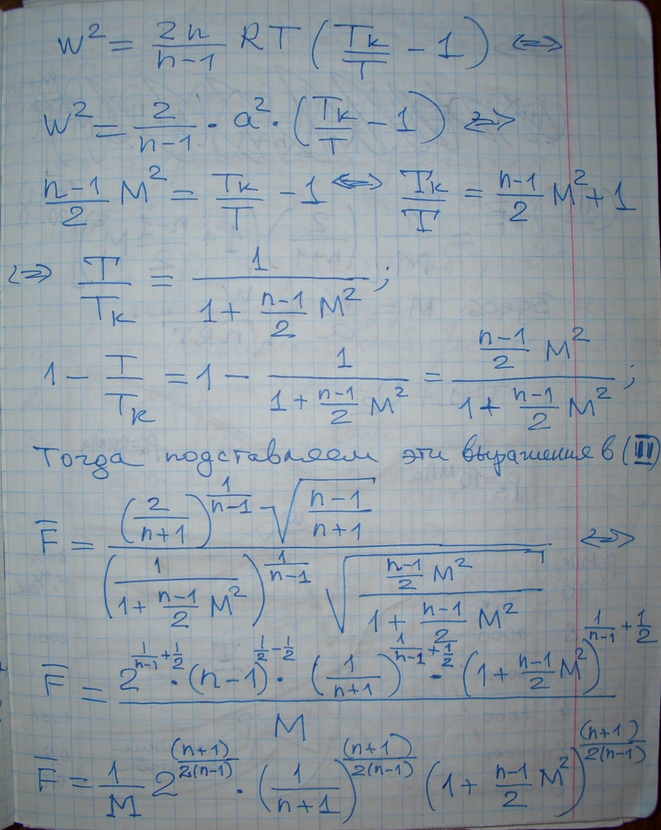 W² = 2n/(n-1) RT (Tк/T - 1) <=>
W² = 2/(n-1) · a² · (Tк/T - 1) <=>
(n-1)/2 M² = Tк/T - 1 <=> Tк/T = (n-1)/2 M² + 1
<=> T/Tк = 1/(1 + (n-1)/2 M²);
1 - T/Tк = 1 - 1/(1 + (n-1)/2 M²) = ((n-1)/2 M²)/(1 + (n-1)/2 M²);
Тогда подставляем эти выражения в (II)
F̅ = ((2/(n+1))^(1/(n-1)) √((n-1)/(n+1)))/((1/(1 + (n-1)/2 M²))^(1/(n-1)) √(((n-1)/2 M²)/(1 + (n-1)/2 M²))) <=>
F̅ = (2^(1/(n-1)+1/2) · (n-1)^(1/2-1/2) · (1/(n+1))^(1/(n-1)+1/2) · (1 + (n-1)/2 M²)^(1/(n-1)+1/2))/M
F̅ = 1/M 2^((n+1)/2(n-1)) · (1/(n+1))^((n+1)/2(n-1)) (1 + (n-1)/2 M²)^((n+1)/2(n-1))